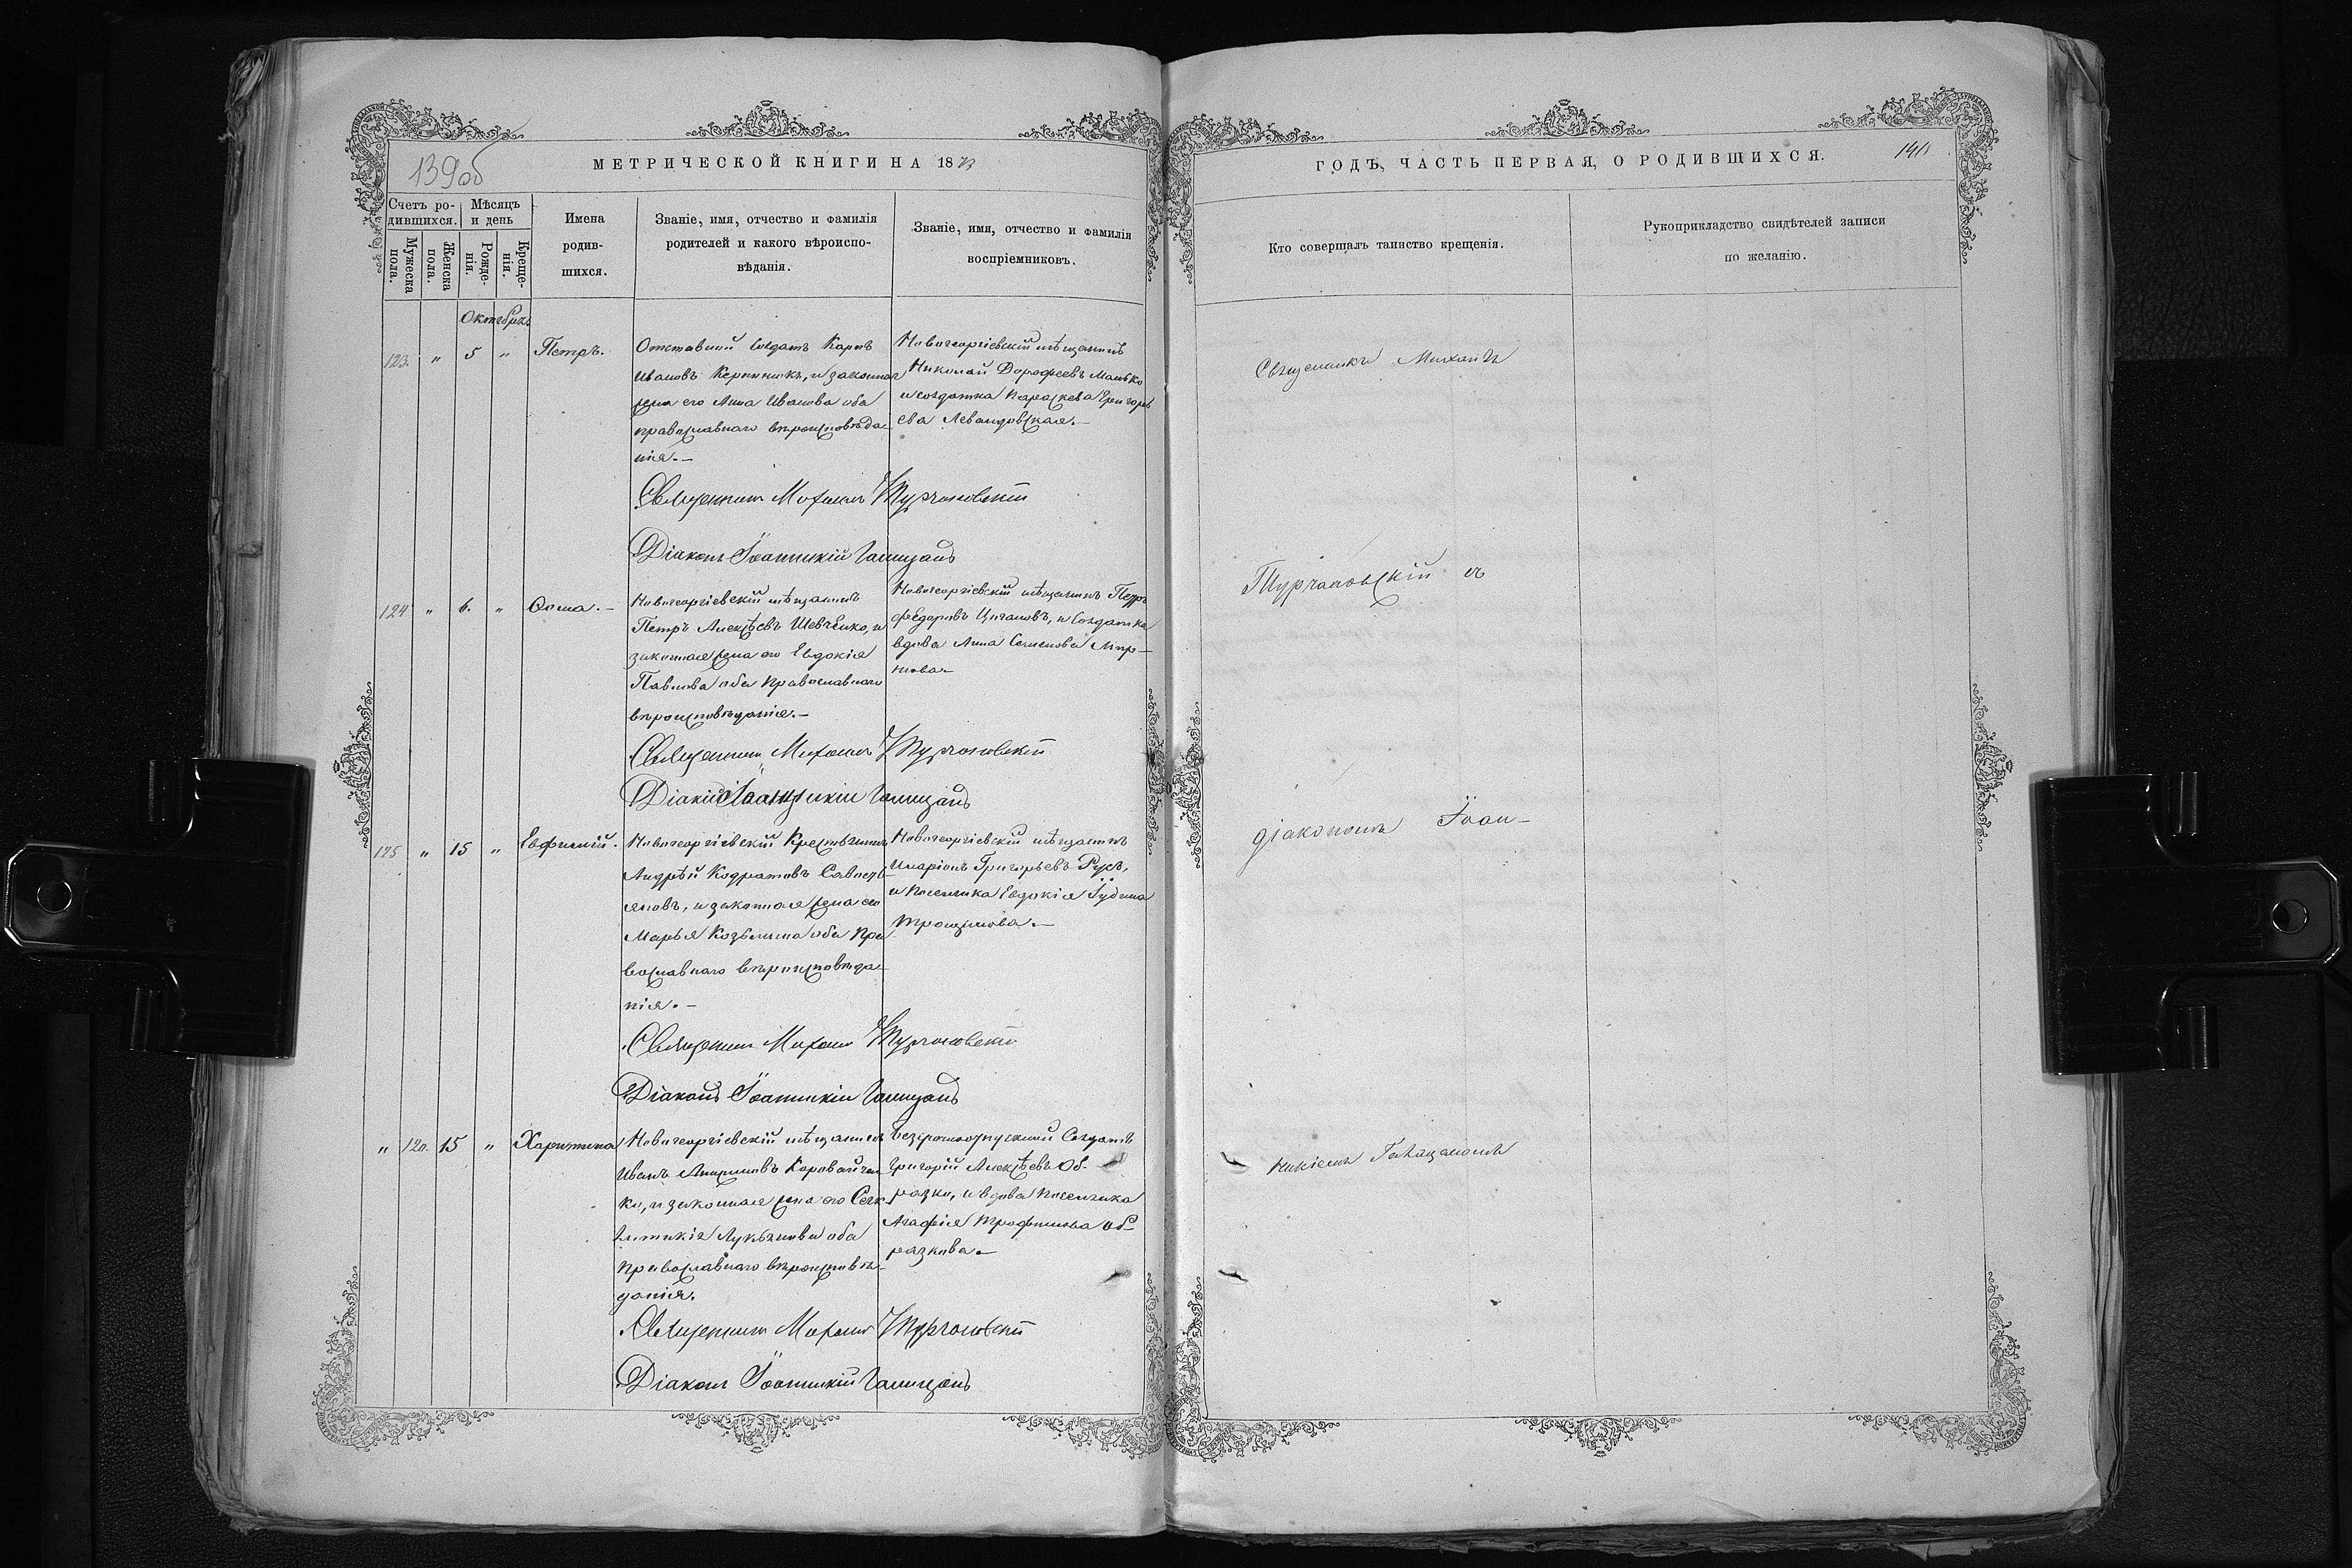 139об
МЕТРИЧЕСКОЙ КНИГИ НА 1873
Счетъ ро-
дившихся.
Мѣсяцъ
и день
Мужеска
пола.
Женска
пола.
Рожде-
нія.
Креще-
нія.
Имена
родив-
шихся.
Званіе, имя, отчество и фамилія
родителей и какого вѣроиспо-
вѣданія.
Званіе, имя, отчество и фамилія
воспріемниковъ.
Октябрь
123. " 5 " Петръ.
Отставный Солдатъ Карпъ
Ивановъ и законная
жена его Анна Иванова оба
православнаго вѣроисповѣда-
нія.-
Новогеоргіевскій мѣщанинъ
Николай Дорофеевъ Манько
и солдатка Параскева Григорь
ева Левандовская.-
Священникъ Михаилъ Турчановскій
Діаконъ Іоанникій
124 " 6. " Ѳома.-
Новогеоргіевскій мѣщанинъ
Петръ Алексѣевъ Шевченко, и
законная жена его Евдокія
Павлова оба Православнаго
вѣроисповѣданія.-
Новогеоргіевскій мѣщанинъ Петръ
Федоровъ Цигановъ, и Солдатка
вдова Анна Семенова Мир-
нова-
Священникъ Михаилъ Турчановскій
125 " 15 " Евфимій.
Новогеоргіевскій Крестьянинъ
Андрѣй Кодратовъ Савость
яновъ, и законная жена его
Марья Козьмина оба Пра
вославнаго вѣроисповѣда-
нія.-
Новогеоргіевскій мѣщанинъ
Иларіонъ Григорьевъ Русъ,
и Поселянка Евдокія Іудина
Трощинова.-
Священникъ Михаилъ Турчановскій
Діаконъ Іоанникій
" 120. 15 " Харитина
Новогеоргіевскій мѣщанинъ
Иванъ Каравайчен
ко, и законная жена его Секле
тикія Лукьянова оба
Православнаго вѣроисповѣ-
данія.
Безсрочноотпускный Солдатъ
Григорій Алексѣевъ Об-
разко, и вдова Поселянка
Агафія Трофимова Об-
разкова.-
Священникъ Михаилъ Турчановскій
Діаконъ Іоанникій
ГОДЪ, ЧАСТЬ ПЕРВАЯ, О РОДИВШИХСЯ.
140
Кто совершалъ таинство крещенія.
Рукоприкладство свидѣтелей записи
по желанію.
Священникъ Михаилъ
Турчановскій съ
діакономъ Іоан-
никіемъ